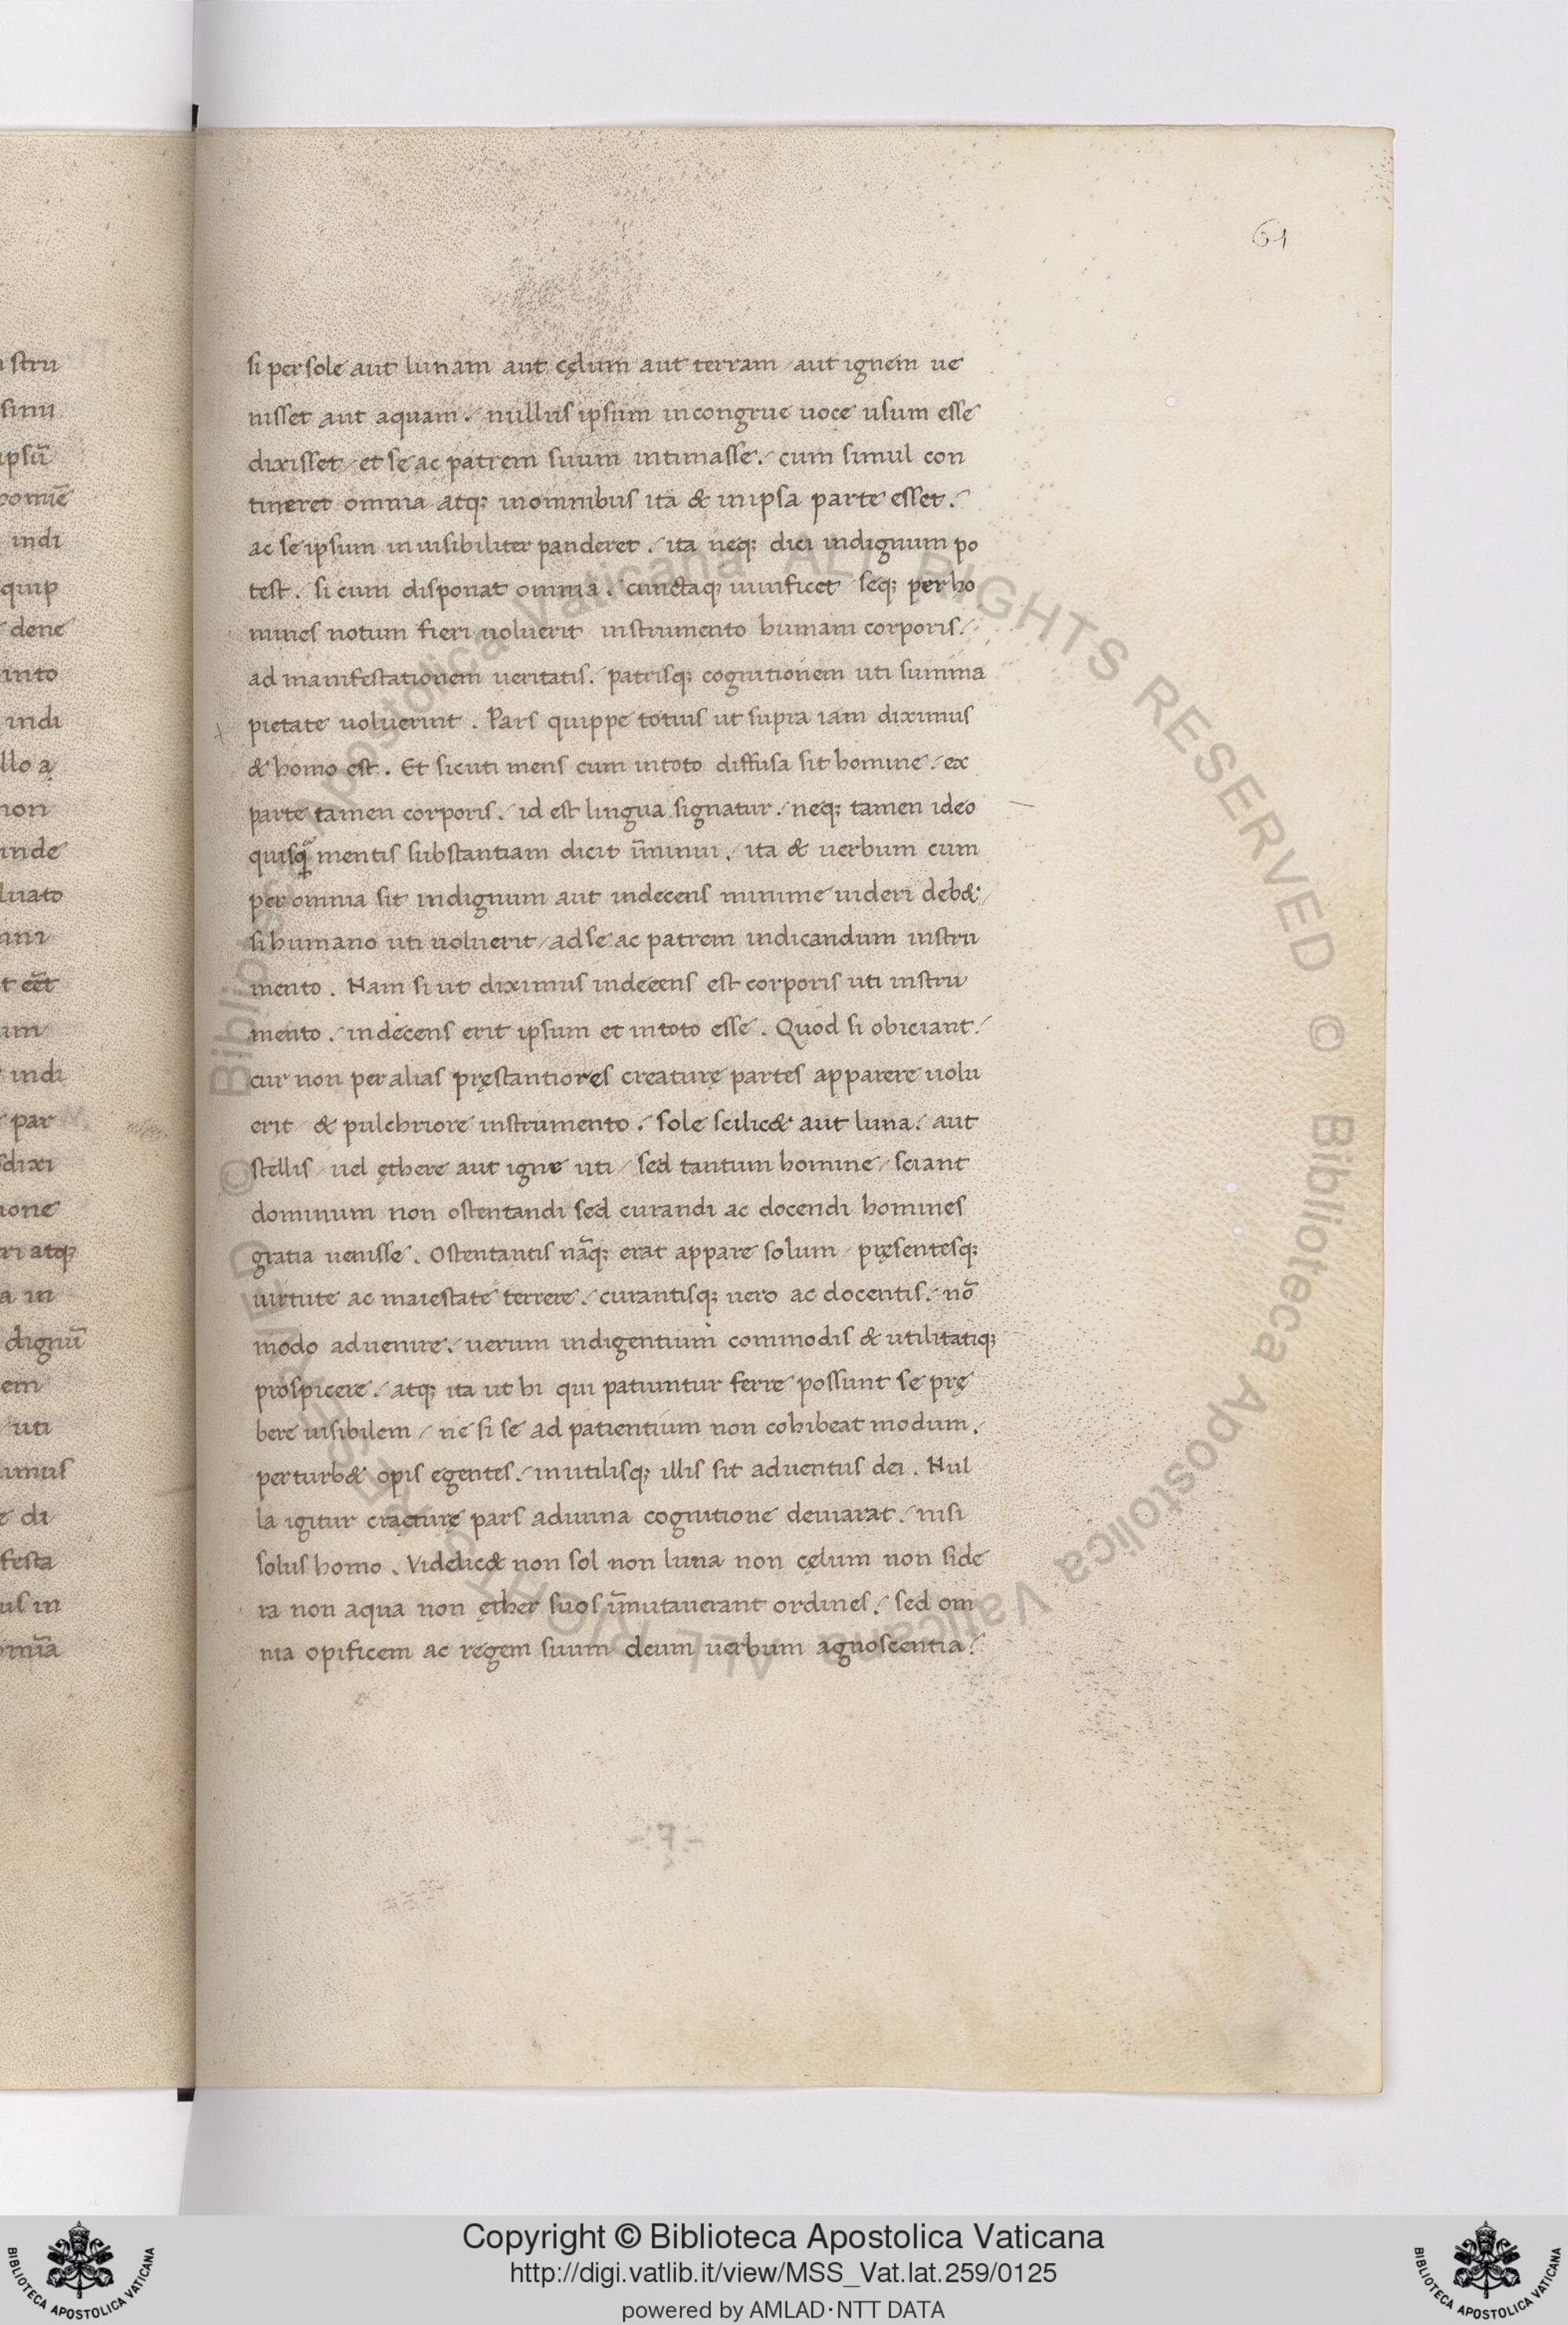 61
si per sole aut lunam aut cęlum aut terram / aut ignem ue
nisset aut aquam ./ nullus ipsum incongrue uoce usum esse
dixisset / et se ac patrem suum intimasse ./ cum simul con
tineret omnia atq; in omnibus ita & in ipsa parte esset ./
ac se ipsum inuisibiliter panderet ./ ita neq; dici indignum po
test . si cum disponat omnia ./ cunctaq; uiuificet / seq; per ho
mines notum fieri uoluerit instrumento humani corporis ./
ad manifestationem ueritatis ./ patrisq; cognitionem uti summa
pietate uoluerint . Pars quippe totius ut supra iam diximus
& homo est . Et sicuti mens cum in toto diffusa sit homine ./ ex
parte tamen corporis ./ id est lingua signatur ./ neq; tamen ideo
quisq̃ mentis substantiam dicit ĩminui ./ ita & uerbum cum
per omnia sit indignum aut indecens minime uideri deb& /
si humano uti uoluerit / ad se ac patrem indicandum instru
mento . Nam si ut diximus indecens est corporis uti instru
mento ./ indecens erit ipsum et in toto esse . Quod si obiciant ./
cur non per alias pręstantiores creaturę partes apparere uolu
erit & pulchriore instrumento ./ sole scilic& aut luna ./ aut
stellis / uel ęthere aut igne uti / sed tantum homine / sciant
dominum non ostentandi sed curandi ac docendi homines
gratia uenisse . Ostentantis nãq; erat appare solum / pręsentesq;
uirtute ac maiestate terrere ./ curantisq; uero ac docentis ./ nõ
modo aduenire ./ uerum indigentium commodis & utilitatiq;
prospicere ./ atq; ita ut hi qui patiuntur ferre possunt se prę
bere uisibilem / ne si se ad patientium non cohibeat modum ./
perturb& opis egentes ./ inutilisq; illis sit aduentus dei . Nul
la igitur craęturę pars a diuina cognitione deuiarat ./ nisi
solus homo . Videlic& non sol non luna non cęlum non side
ra non aqua non ęther suos ĩmutauerant ordines ./ sed om
nia opificem ac regem suum deum uerbum agnoscentia ./
Copyright © Biblioteca Apostolica Vaticana
http://digi.vatlib.it/view/MSS_Vat.lat.259/0125
powered by AMLAD·NTT DATA